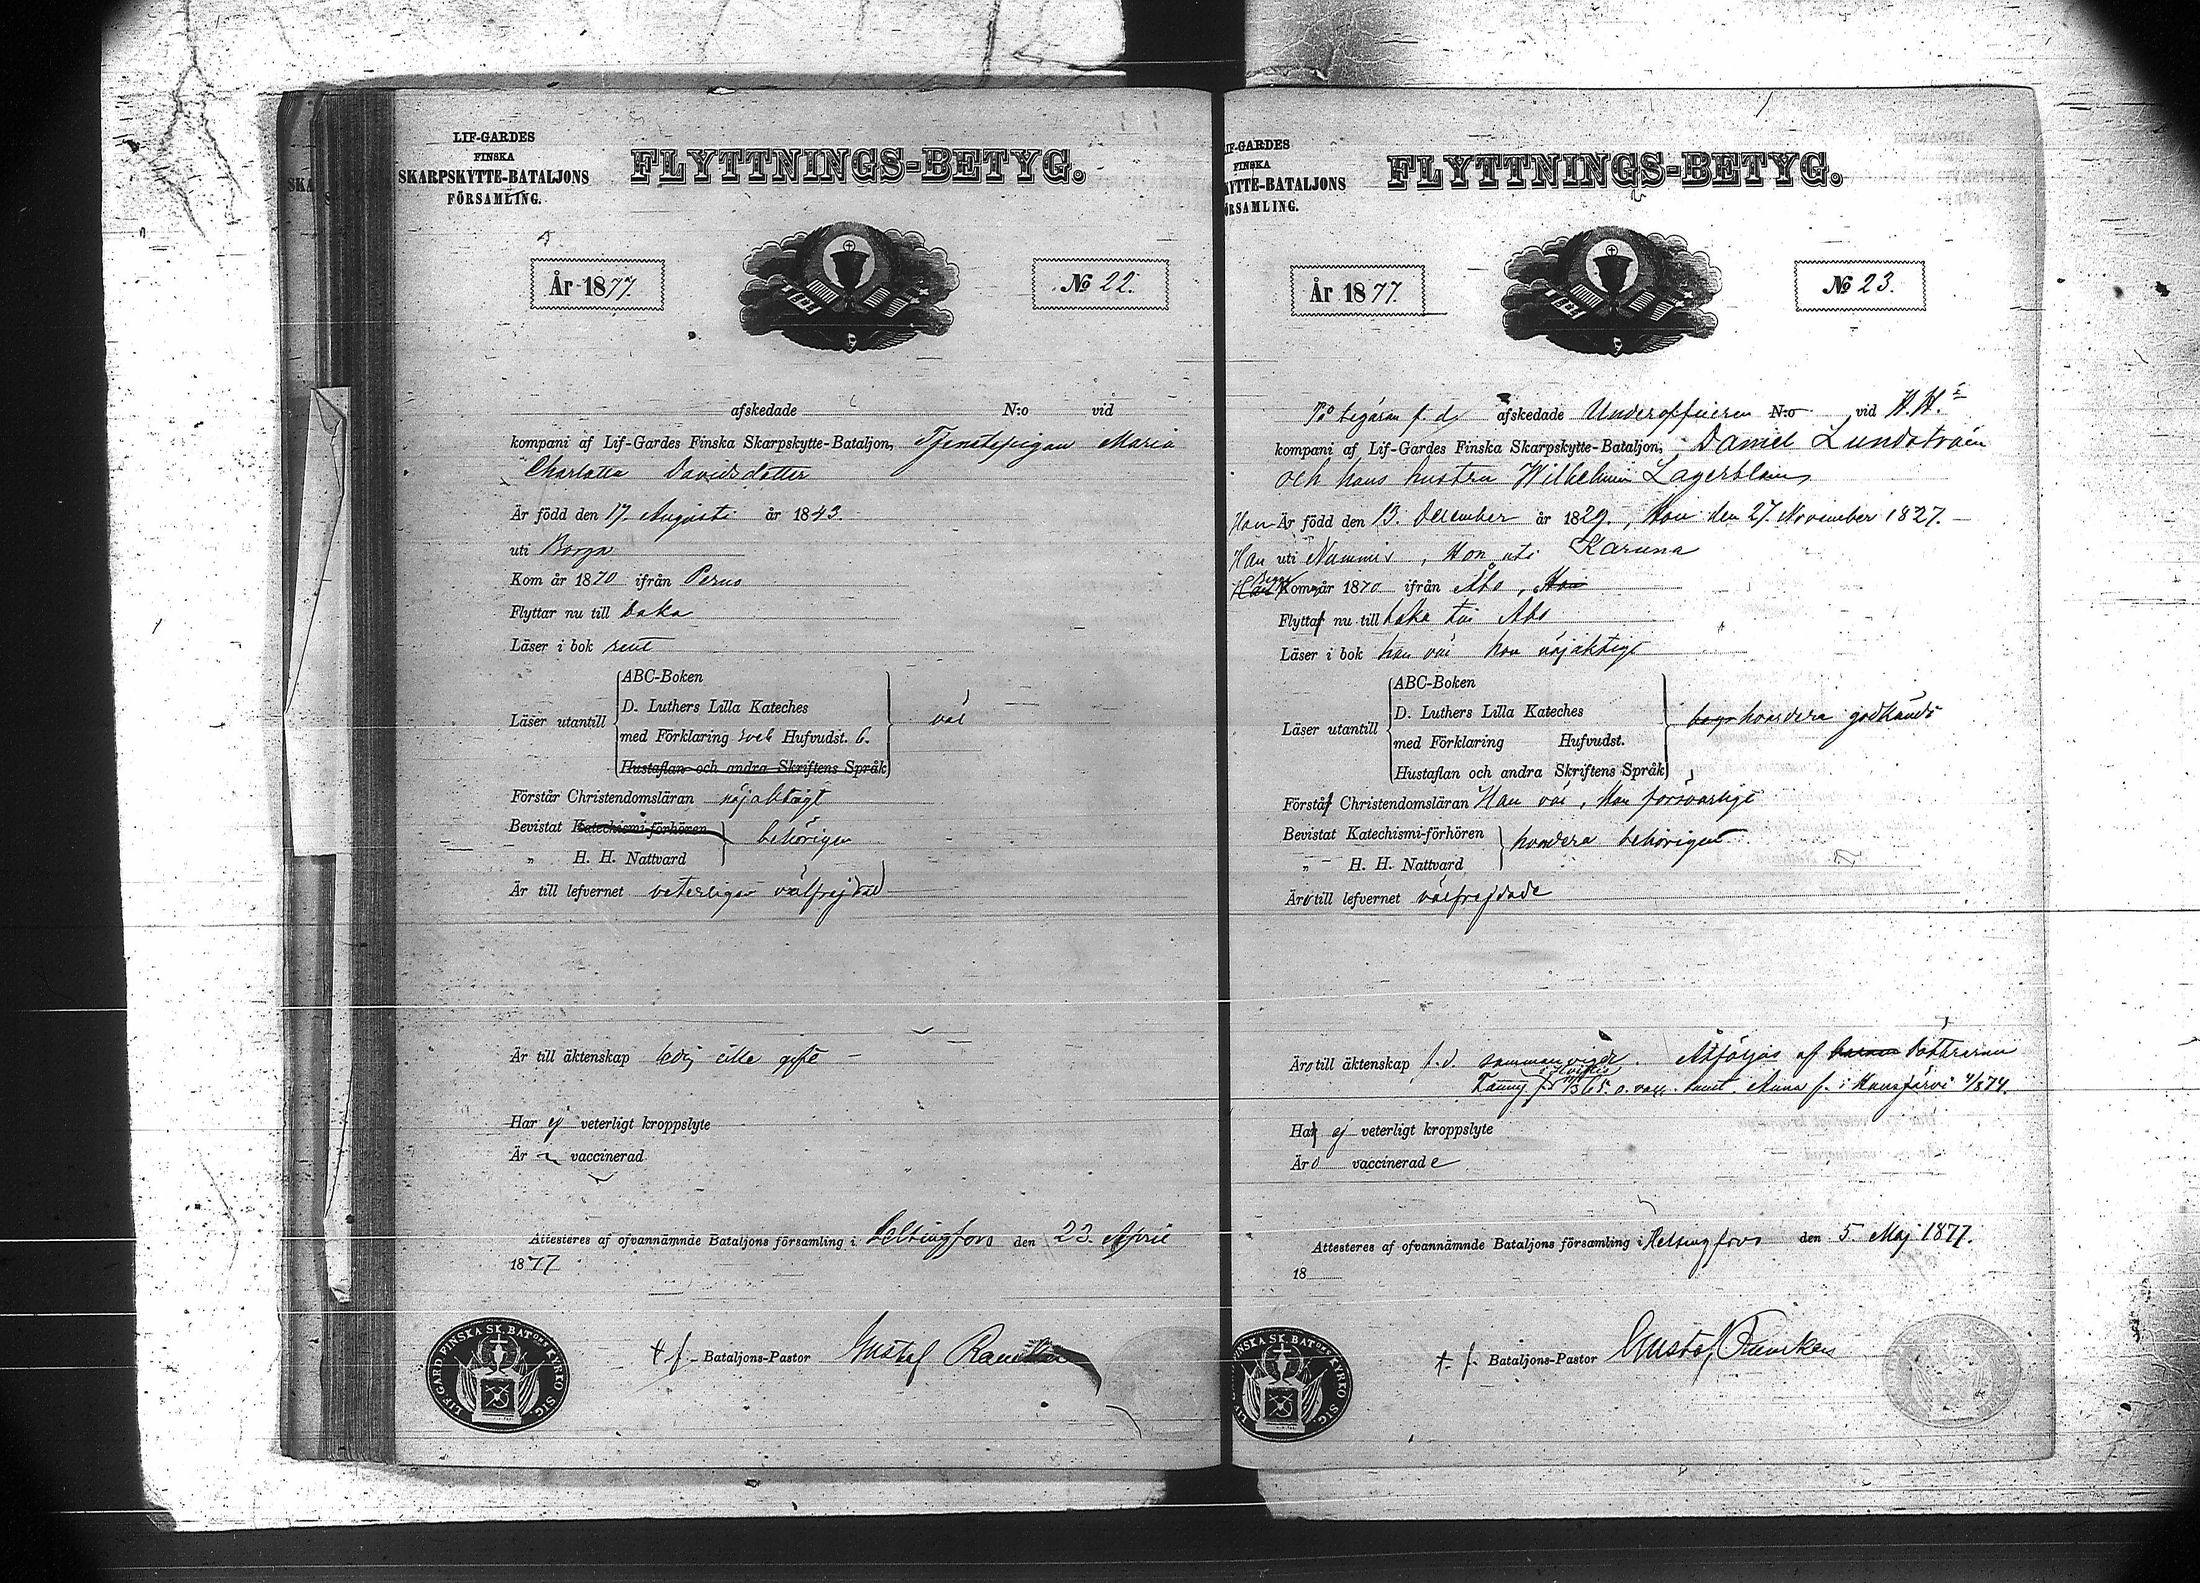 LIF-GARDES
FINSKA
SKARPSKYTTE-BATALJONS
FÖRSAMLING.
FLYTTNINGS-BETYG.
År 1877.
№ 22.
afskedade N:o vid
kompani af Lif-Gardes Finska Skarpskytte-Bataljon, Tjenstepigan Maria
Charlotta Davidsdotter
Är född den 17. Augusti år 1843.
uti Borga
Kom år 1870 ifrån Perno
Flyttar nu till baka
Läser i bok rent
Läser utantill
ABC-Boken
D. Luthers Lilla Kateches
med Förklaring Hufvudst. 6.
Hustaflan och andra Skriftens Språk
väl
Förstår Christendomsläran nöjaktigt
Bevistat Katechismi-förhören
„ H. H. Nattvard
behörigen
Är till lefvernet veterligen välfrejdad
Är till äktenskap ledig
Har ej veterligt kroppslyte
Är vaccinerad
Attesteres af ofvannämnde Bataljons församling i Helsingfors den 23. April
1877
t f. Bataljons-Pastor Gustaf
LIF-GARD FINSKA SK. BAT:ONS KYRKO SIG.
IF-GARDES
FINSKA
KYTTE-BATALJONS
ÖRSAMLING.
FLYTTNINGS-BETYG.
År 1877.
№ 23.
På begäran f. d. afskedade Underofficeren N:o vid
kompani af Lif-Gardes Finska Skarpskytte-Bataljon, Daniel Lundström
och hans hustru Lagerblom
Han Är född den 13. December år 1829., Hon den 27. November 1827.
Han uti Nummis, Hon uti Karuna
Kom år 1870 ifrån Åbo, Hon
Flytta nu till baka till Åbo
Läser i bok han väl hon nöjaktigt
Läser utantill
ABC-Boken
D. Luthers Lilla Kateches
med Förklaring Hufvudst.
Hustaflan och andra Skriftens Språk
hvardera godkändt
Förstå Christendomsläran Han väl, Hon försvarligt
Bevistat Katechismi-förhören
„ H. H. Nattvard
hvardera behörigen
Äro till lefvernet välfrejdade
Äro till äktenskap f. d. sammanvigde. Åtföljas af barnen döttrarna
Fanny samt Anna f. i
Ha ej veterligt kroppslyte
Äro vaccinerade
Attesteres af ofvannämnde Bataljons församling i Helsingfors den 5 Maj 1877.
18
t. f. Bataljons-Pastor Gustaf
FINSKA SK. BAT:ONS KYRKO SIG.